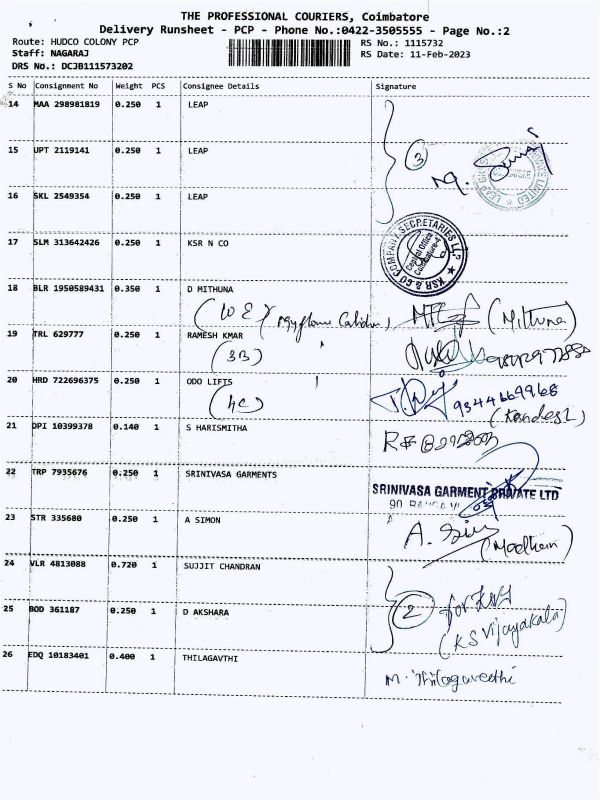 THE PROFESSIONAL COURIERS, Coimbatore
Delivery Runsheet - PCP - Phone No.:0422-3505555 - Page No.:2
Route: HUDCO COLONY PCP RS No.: 1115732
Staff: NAGARAJ RS Date: 11-Feb-2023
DRS No.: DCJB111573202
S No Consignment No Weight PCS Consignee Details Signature
14 MAA 298981819 0.250 1 LEAP
15 UPT 2119141 0.250 1 LEAP
3
16 SKL 2549354 0.250 1 LEAP
17 SLM 313642426 0.250 1 KSR N CO
KSR & CO COMPANY SECRETARIES LLP
18 BLR 1950589431 0.350 1 D MITHUNA
(Mithuna)
19 TRL 629777 0.250 1 RAMESH KMAR
(3B)
20 HRD 722696375 0.250 1 ODO LIFTS
(4C) 9344669968
21 DPI 10399378 0.140 1 S HARISMITHA
22 TRP 7935676 0.250 1 SRINIVASA GARMENTS
SRINIVASA GARMENT PRIVATE LTD
23 STR 335680 0.250 1 A SIMON
24 VLR 4813088 0.720 1 SUJJIT CHANDRAN
25 BOD 361187 0.250 1 D AKSHARA
2 for
(KS Vijayakala)
26 EDQ 10183401 0.400 1 THILAGAVTHI
M. Thilagavethi